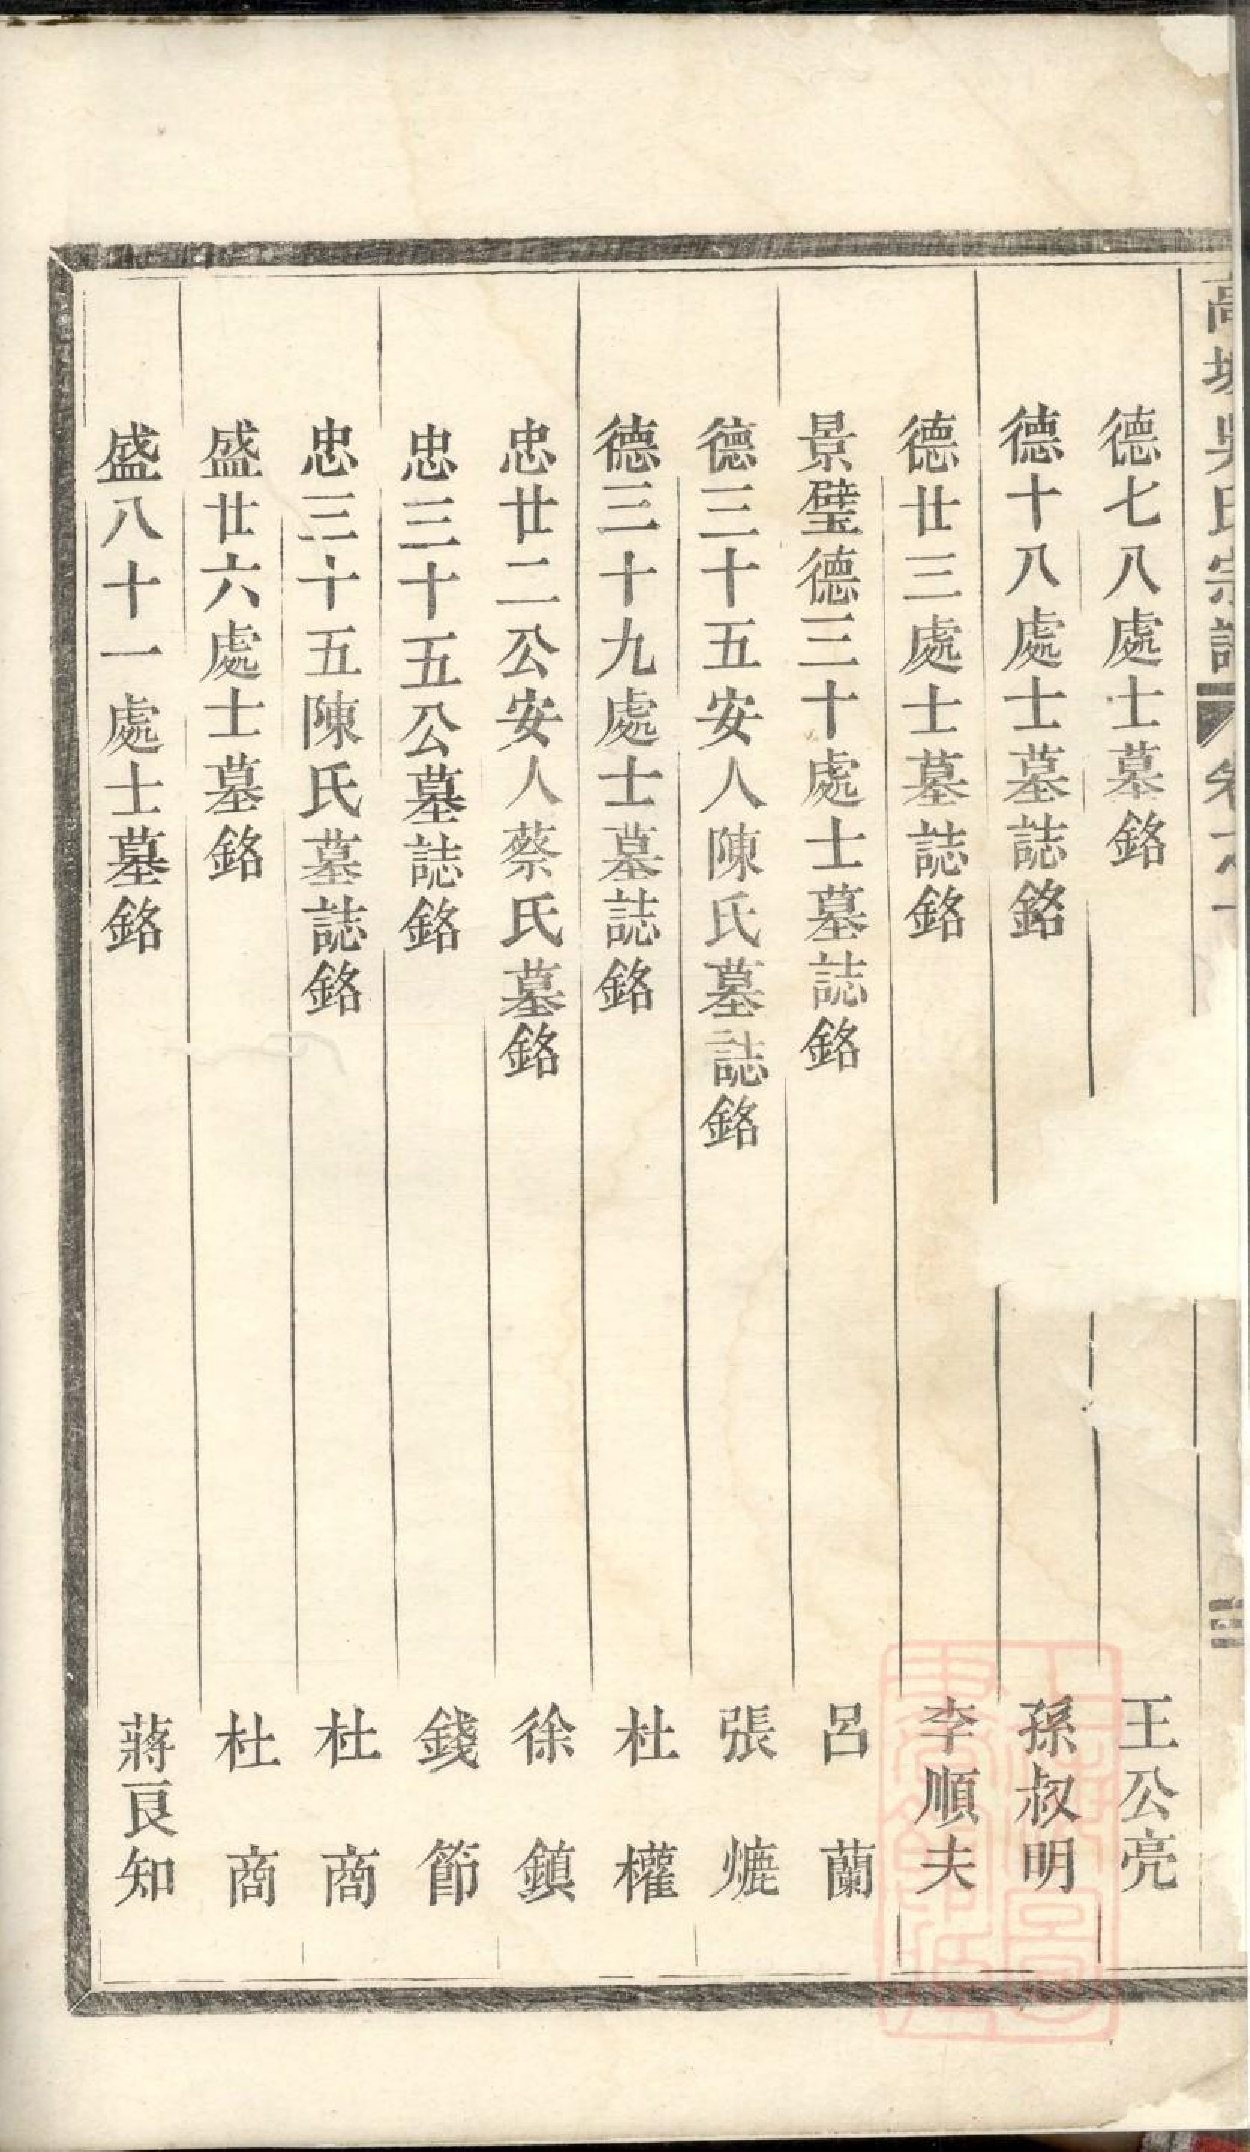 高 吳氏宗譜 卷之一 三
德七八處士墓銘 王公亮
德十八處士墓誌銘 孫叔明
德廿三處士墓誌銘 李順夫
景璧德三十處士墓誌銘 呂蘭
德三十五安人陳氏墓誌銘 張熝
德三十九處士墓誌銘 杜權
忠廿二公安人蔡氏墓銘 徐鎮
忠三十五公墓誌銘 錢節
忠三十五陳氏墓誌銘 杜商
盛廿六處士墓銘 杜商
盛八十一處士墓銘 蔣良知